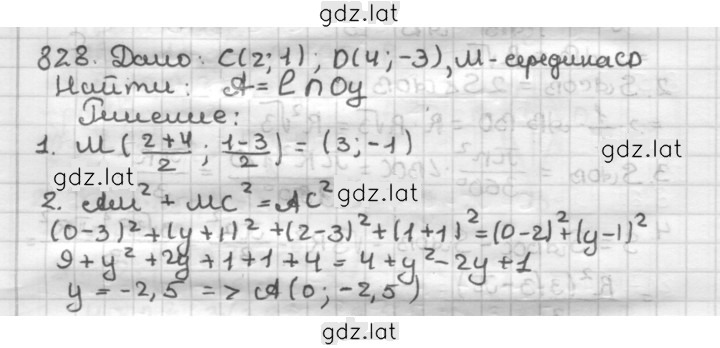 gdz.lat
828. Дано: C(2; 1); D(4; -3), M - середина CD
Найти: A = l ∩ Oy
Решение:
1. M ( (2+4)/2 ; (1-3)/2 ) = (3; -1)
gdz.lat
gdz.lat
gdz.lat
2. AM² + MC² = AC²
(0-3)² + (y+1)² + (2-3)² + (1+1)² = (0-2)² + (y-1)²
9 + y² + 2y + 1 + 1 + 4 = 4 + y² - 2y + 1
y = -2,5 => A(0; -2,5)
gdz.lat